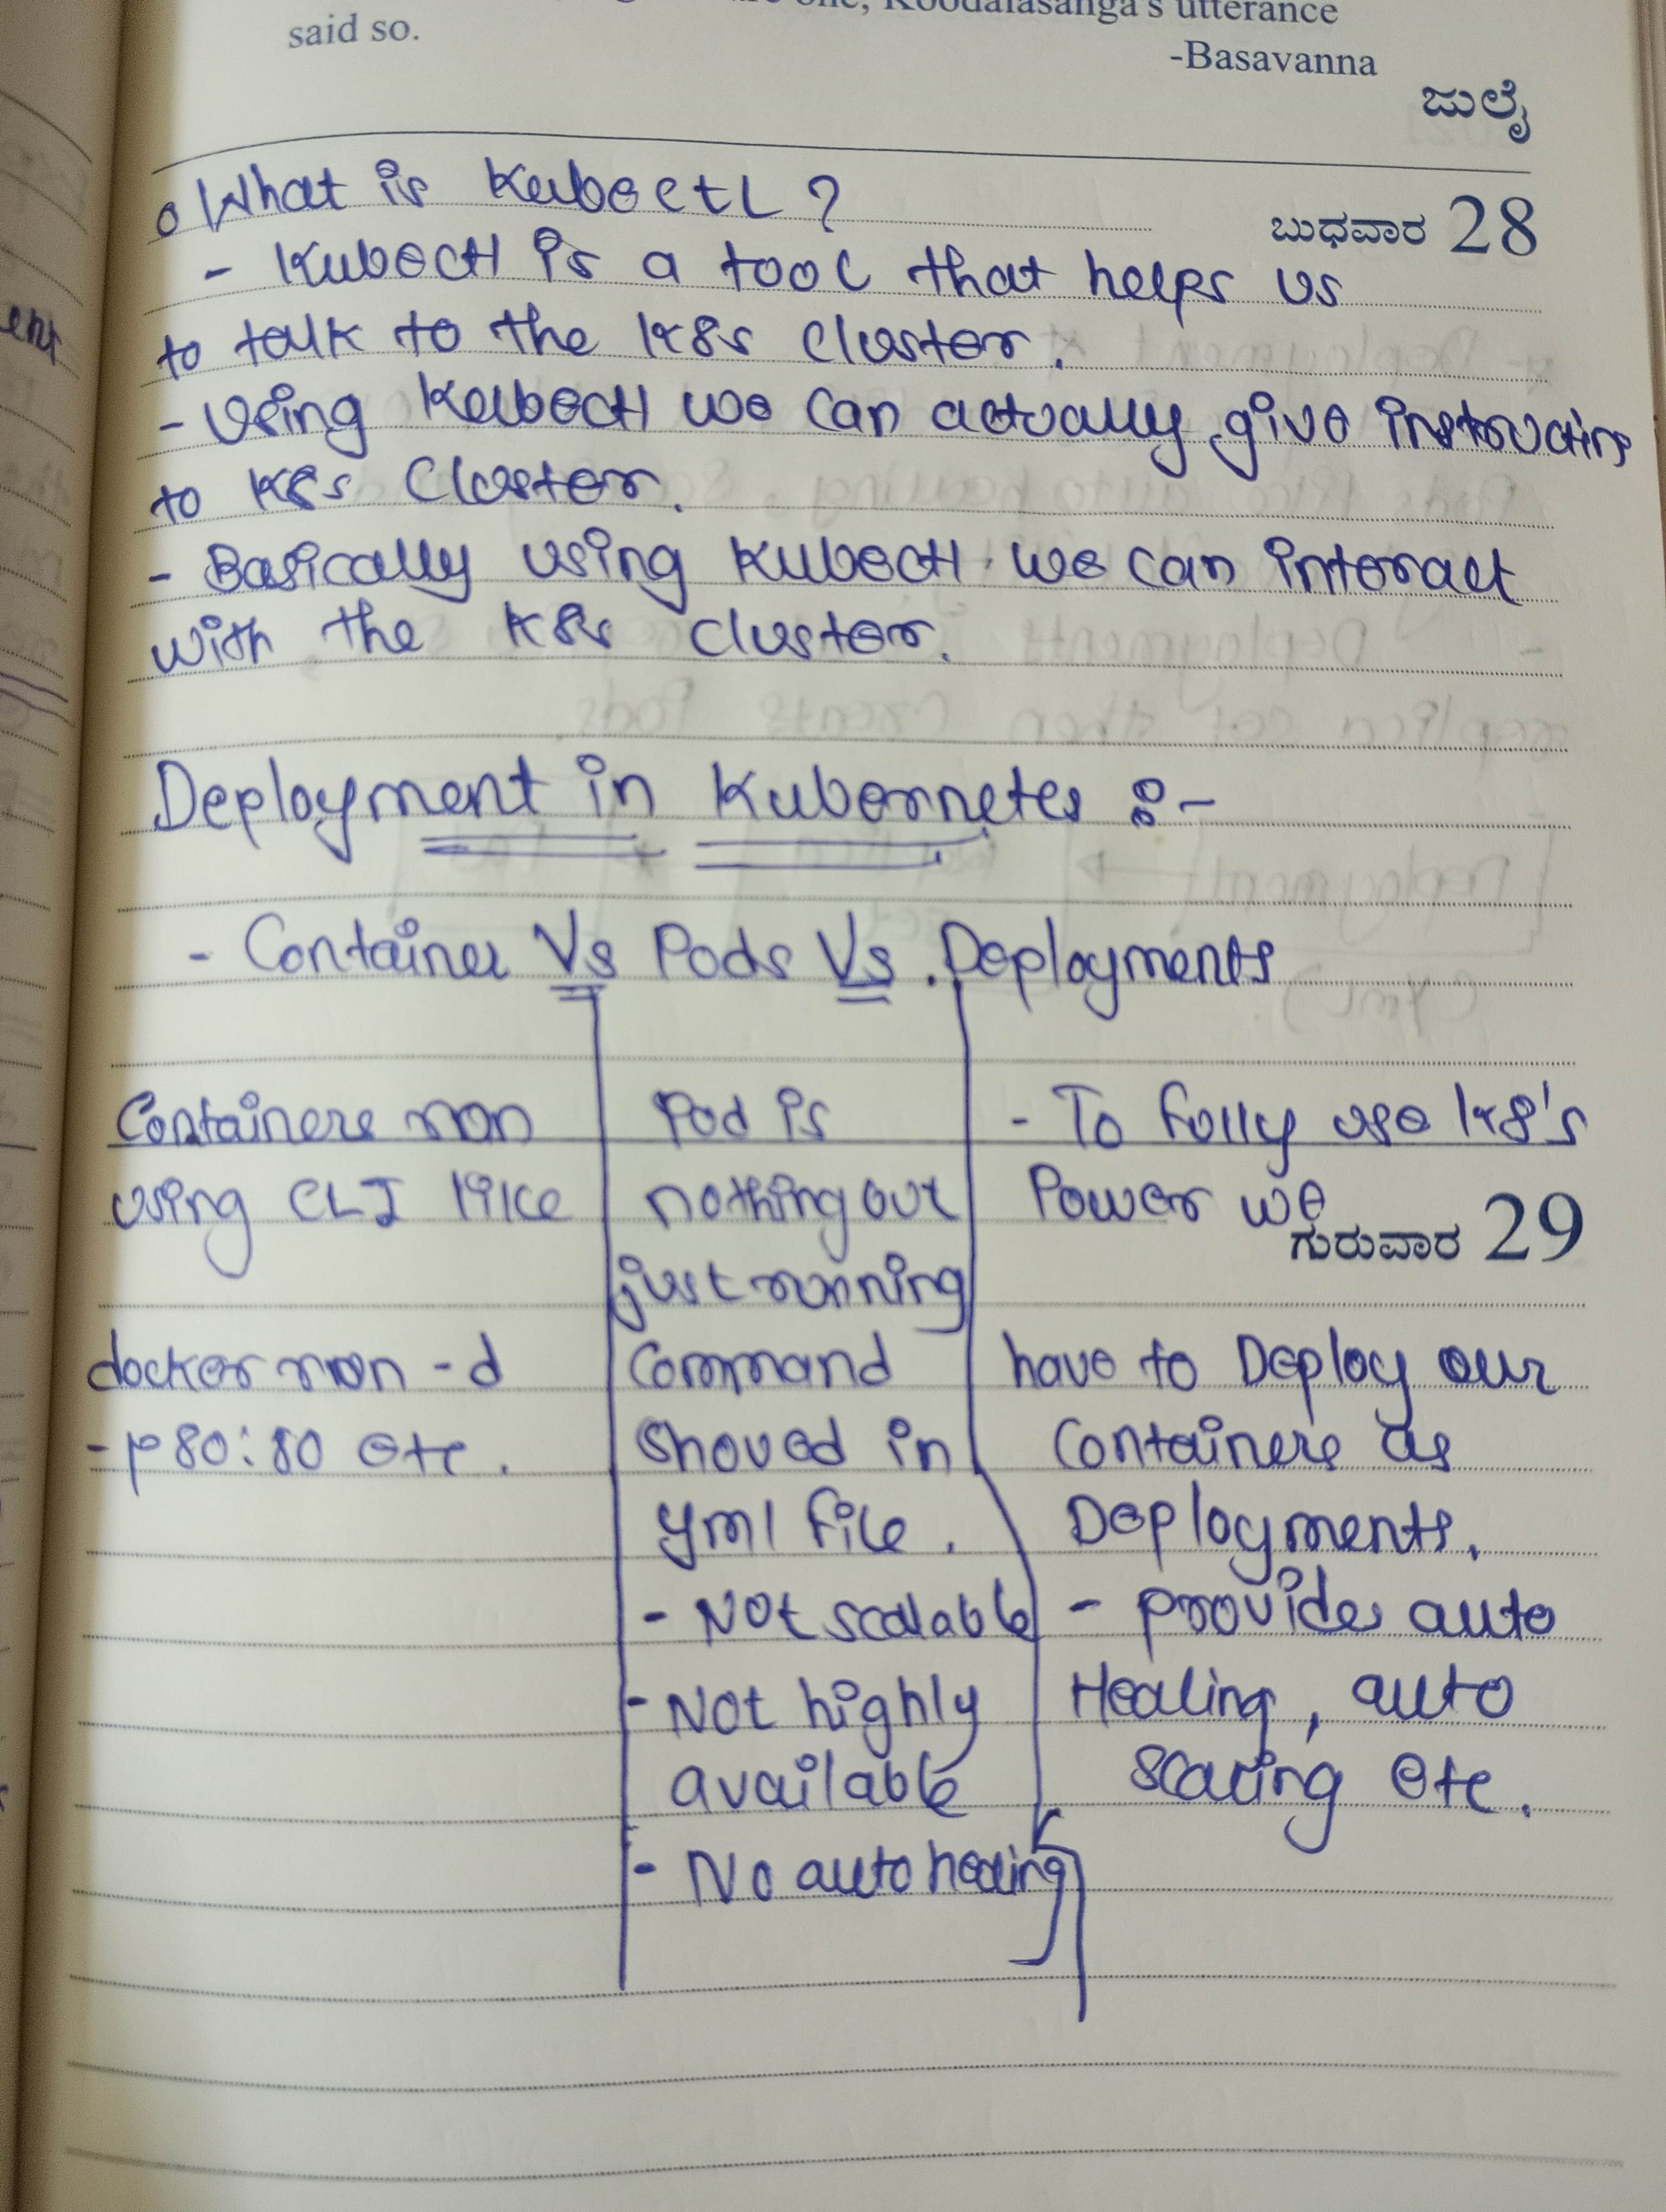 said so.
Koodalasanga's utterance
-Basavanna
ಜುಲೈ
ಬುಧವಾರ 28
What is KubectL ?
- Kubectl is a tool that helps us
to talk to the K8s Cluster.
- Using Kubectl we can actually give instructins
to K8s Cluster.
- Basically using Kubectl we can interact
with the K8s cluster.
Deployment in Kubernetes :-
- Container Vs Pods Vs Deployments
Containers run
using CLI like
docker run -d
-p 80:80 etc.
Pod is
nothing but
just running
Command
shoved in
yml file.
- Not scalable
- Not highly
available
- No auto healing
- To fully use K8's
Power we
ಗುರುವಾರ 29
have to Deploy our
Containers as
Deployments.
- provides auto
Healing, auto
scaling etc.